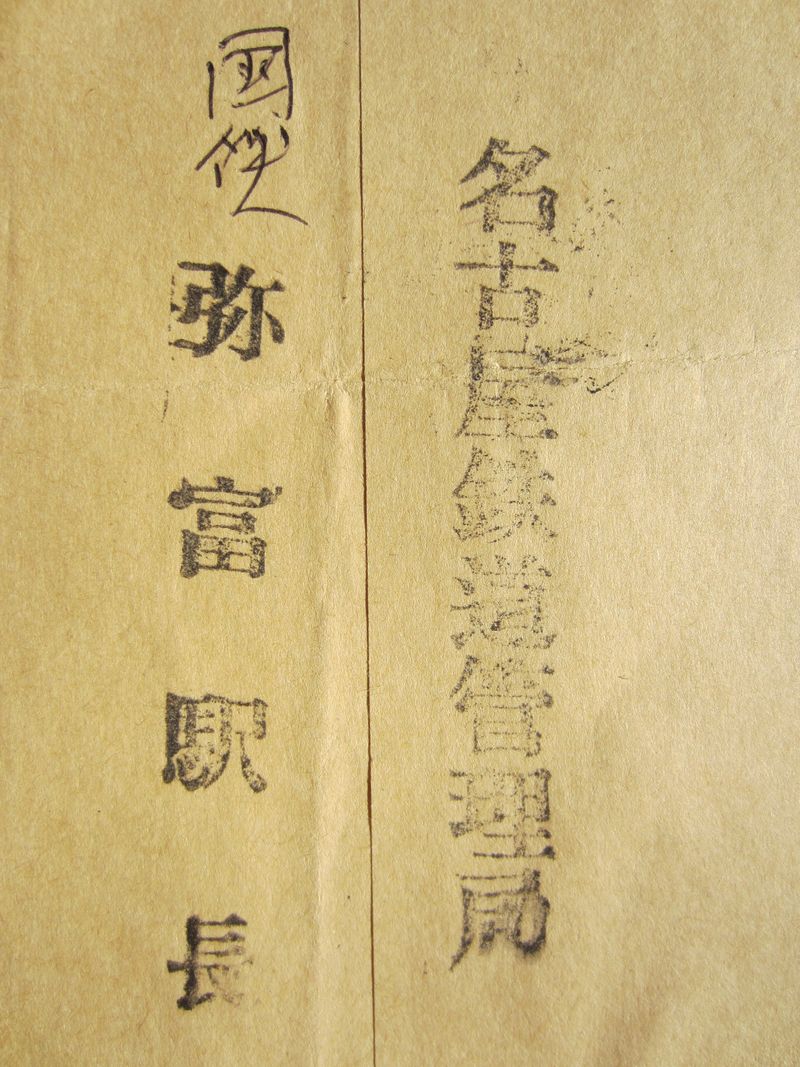 名古屋鉄道管理局
国鉄 弥富駅長